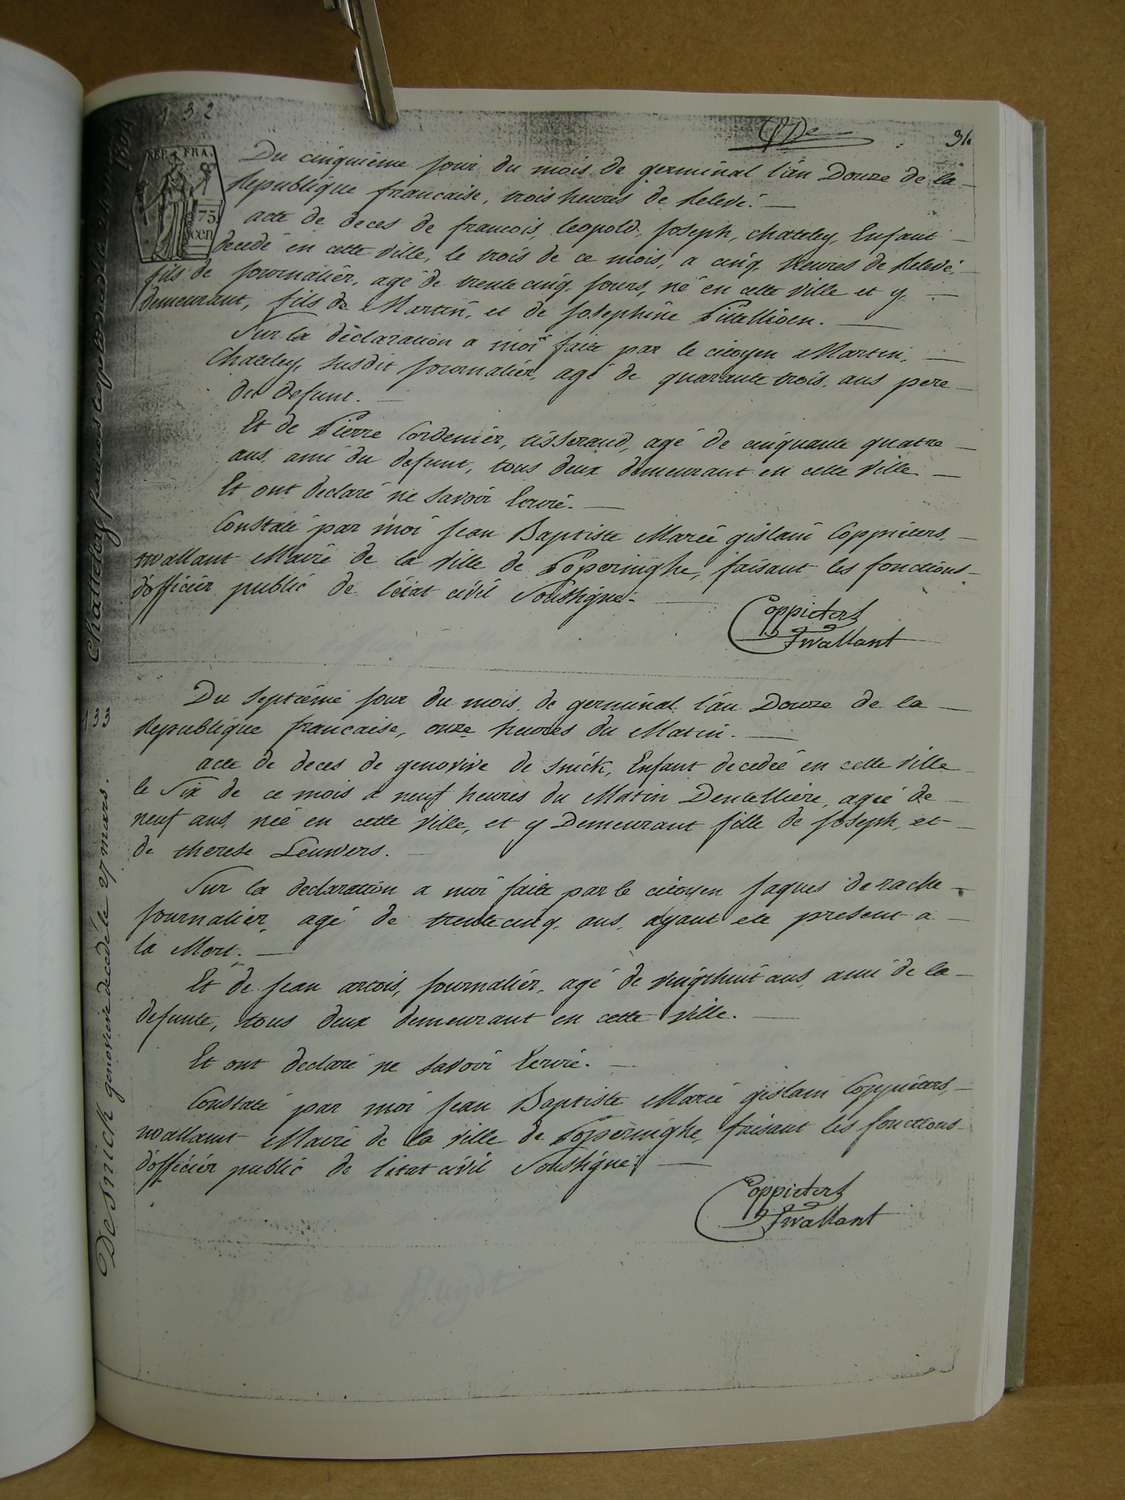 132
34
REP. FRA.
75
cen
Du cinquième jour du mois de germinal l'an Douze de la
Republique francaise, trois heures de Relevé.
acte de deces de francois, leopold, Joseph, chatteley, Enfant
decedé en cette ville, le trois de ce mois, a cinq heures de Relevé,
fils de Journalier, agé de trente cinq jours, né en cette ville et y
demeurant, fils de Martin, et de Josephine
Sur la déclaration a moi faite par le citoyen Martin,
Chatteley, susdit journalier, agé de quarante trois ans pere
du defunt.
Et de Pierre Cordenier, tisserand, agé de cinquante quatre
ans ami du defunt, tous deux demeurant en cette ville.
Et ont declaré ne savoir Ecrire.
Constaté par moi Jean Baptiste Marie gislain Coppieters,
wallant Maire de la ville de Poperinghe, faisant les fonctions
d'officier public de l'état civil Soussigné.
Coppieters
T'wallant
133
Du Septième jour du mois de germinal l'an Douze de la
Republique francaise, onze heures du Matin.
acte de deces de genovive de snick, Enfant decedée en cette ville
le Six de ce mois a neuf heures du Matin Dentellière, agée de
neuf ans née en cette ville, et y Demeurant fille de Joseph, et
de therese Leuwers.
Sur la declaration a moi faite par le citoyen Jaques derache
Journalier, agé de trente cinq ans, ayant ete present a
la Mort.
Et de Jean arcois, journalier, agé de vingthuit ans ami de la
defunte, tous deux demeurant en cette ville.
Et ont declaré ne savoir Ecrire.
Constaté par moi Jean Baptiste Marie gislain Coppieters,
wallant Maire de la ville de Poperinghe, faisant les fonctions
d'officier public de l'etat civil Soussigné.
Coppieters
T'wallant
De snick genovive decedé le 27 mars.